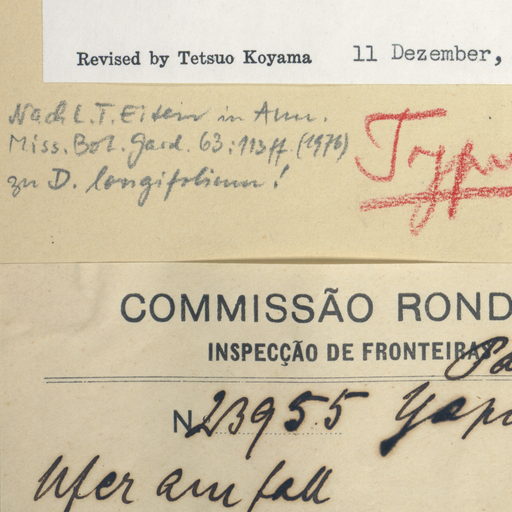 Revised by Tetsuo Koyama 11 Dezember,
Nach L.T. Eiten in Ann.
Miss. Bot. Gard. 63:113ff. (1976)
zu D. longifolium!
Typu
COMMISSÃO ROND
INSPECÇÃO DE FRONTEIRAS
Pa
N 23955 Yap
Ufer am fall